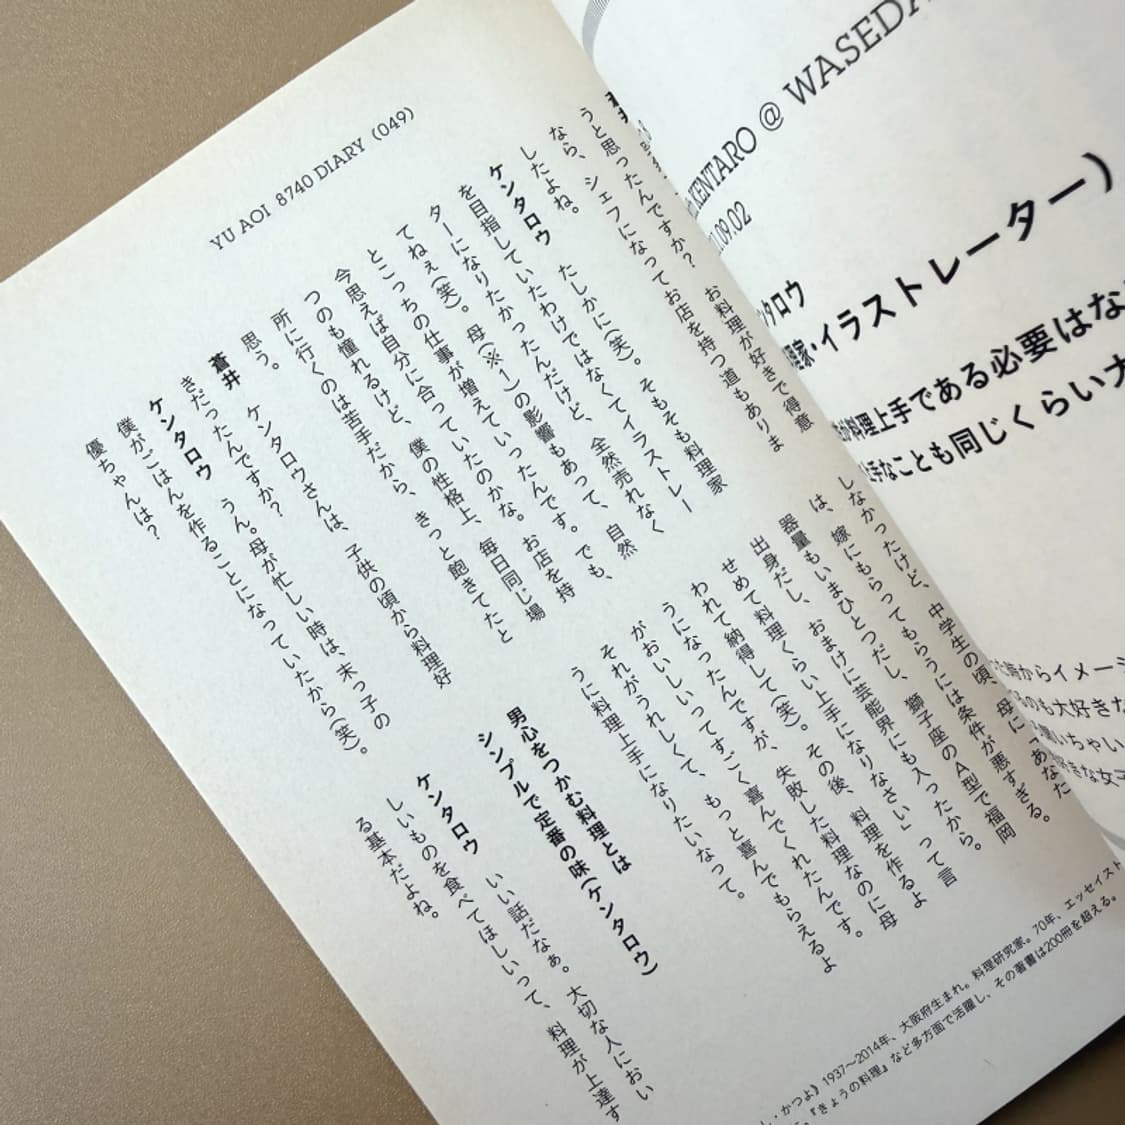 YU AOI 8740 DIARY (049)
うと思ったんですか? お料理が好きで得意
なら、シェフになってお店を持つ道もありま
したよね。
ケンタロウ たしかに(笑)。そもそも料理家
を目指していたわけではなくてイラストレー
ターになりたかったんだけど、全然売れなく
てねぇ(笑)。母(※1)の影響もあって、自然
とこっちの仕事が増えていったんです。でも、
今思えば自分に合っていたのかな。お店を持
つのも憧れるけど、僕の性格上、毎日同じ場
所に行くのは苦手だから、きっと飽きてたと
思う。
蒼井 ケンタロウさんは、子供の頃から料理好
きだったんですか?
ケンタロウ うん。母が忙しい時は、末っ子の
僕がごはんを作ることになっていたから(笑)。
優ちゃんは?
しなかったけど、中学生の頃、母に「あなた
は、嫁にもらってもらうには条件が悪すぎる。
器量もいまひとつだし、獅子座のA型で福岡
出身だし、おまけに芸能界にも入ったから。
せめて料理くらい上手になりなさい」って言
われて納得して(笑)。その後、料理を作るよ
うになったんですが、失敗した料理なのに母
がおいしいってすごく喜んでくれたんです。
それがうれしくて、もっと喜んでもらえるよ
うに料理上手になりたいなって。
男心をつかむ料理とは
シンプルで定番の味(ケンタロウ)
ケンタロウ いい話だなぁ。大切な人においしいものを食べてほしいって、料理が上達す
る基本だよね。
し・かつよ》1937〜2014年、大阪府生まれ。料理研究家。70年、エッセイスト
『きょうの料理』など多方面で活躍し、その著書は200冊を超える。
KENTARO @ WASEDA
.09.02
ンタロウ
理家・イラストレーター)
が料理上手である必要はな
手なことも同じくらい大
時からイメージ
るのも大好きな
いちゃい
きな女子